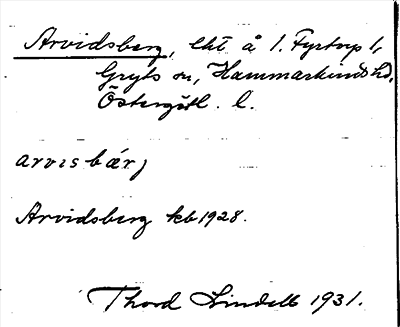 Arvidsberg, lht å 1. Fyrtorp 1,
Gryts sn, Hammarkinds hd,
Östergötl. l.
arvisbärj
Arvidsberg kb 1928.
Thord Lindell 1931.